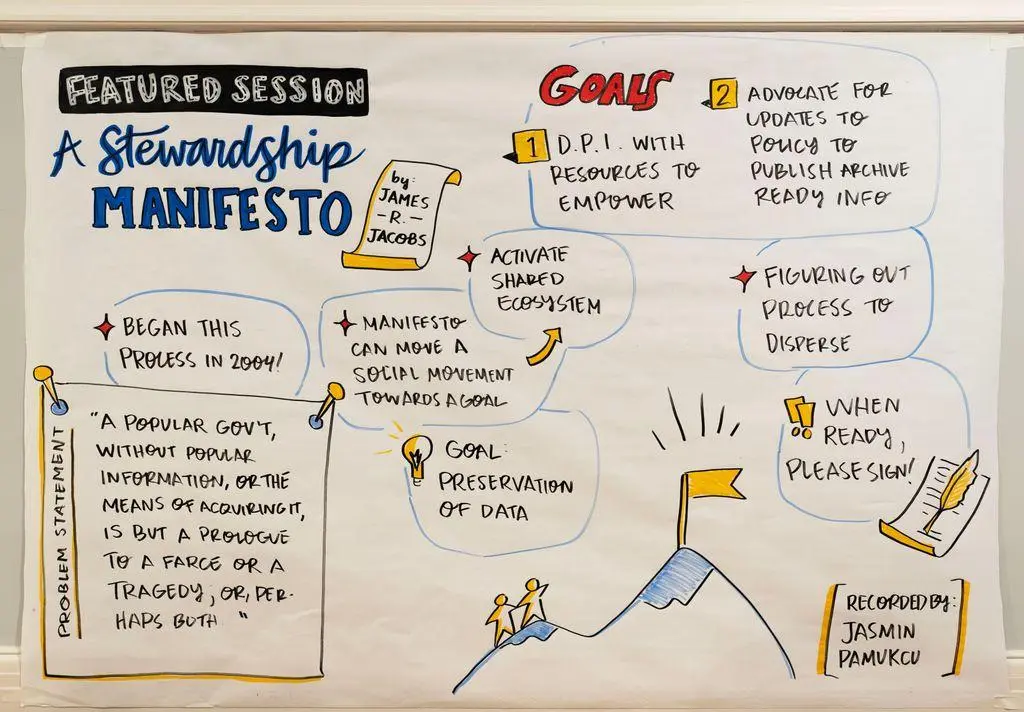 FEATURED SESSION
A Stewardship
MANIFESTO
by:
JAMES
- R. -
JACOBS
GOALS
1 D.P.I. WITH
RESOURCES TO
EMPOWER
2 ADVOCATE FOR
UPDATES TO
POLICY TO
PUBLISH ARCHIVE
READY INFO
BEGAN THIS
PROCESS IN 2004!
MANIFESTO
CAN MOVE A
SOCIAL MOVEMENT
TOWARDS A GOAL
ACTIVATE
SHARED
ECOSYSTEM
FIGURING OUT
PROCESS TO
DISPERSE
PROBLEM STATEMENT
"A POPULAR GOV'T,
WITHOUT POPULAR
INFORMATION, OR THE
MEANS OF ACQUIRING IT,
IS BUT A PROLOGUE
TO A FARCE OR A
TRAGEDY; OR, PER-
HAPS BOTH "
GOAL:
PRESERVATION
OF DATA
!! WHEN
READY,
PLEASE SIGN!
RECORDED BY:
JASMIN
PAMUKCU